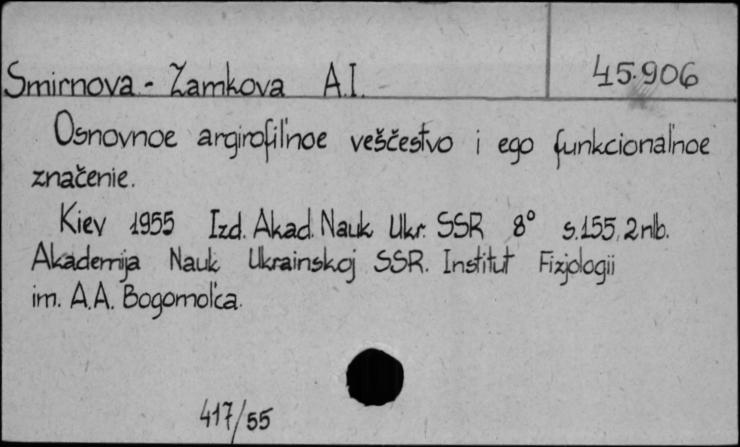 Smirnova - Zamkova A.I. 45.906
Osnovnoe argirofil'noe veščestvo i ego funkcional'noe
značenie.
Kiev 1955 Izd. Akad. Nauk Ukr. SSR 8° s.155, 2 nlb.
Akademija Nauk Ukrainskoj SSR. Institut Fizjologii
im. A.A. Bogomol'ca.
417/55